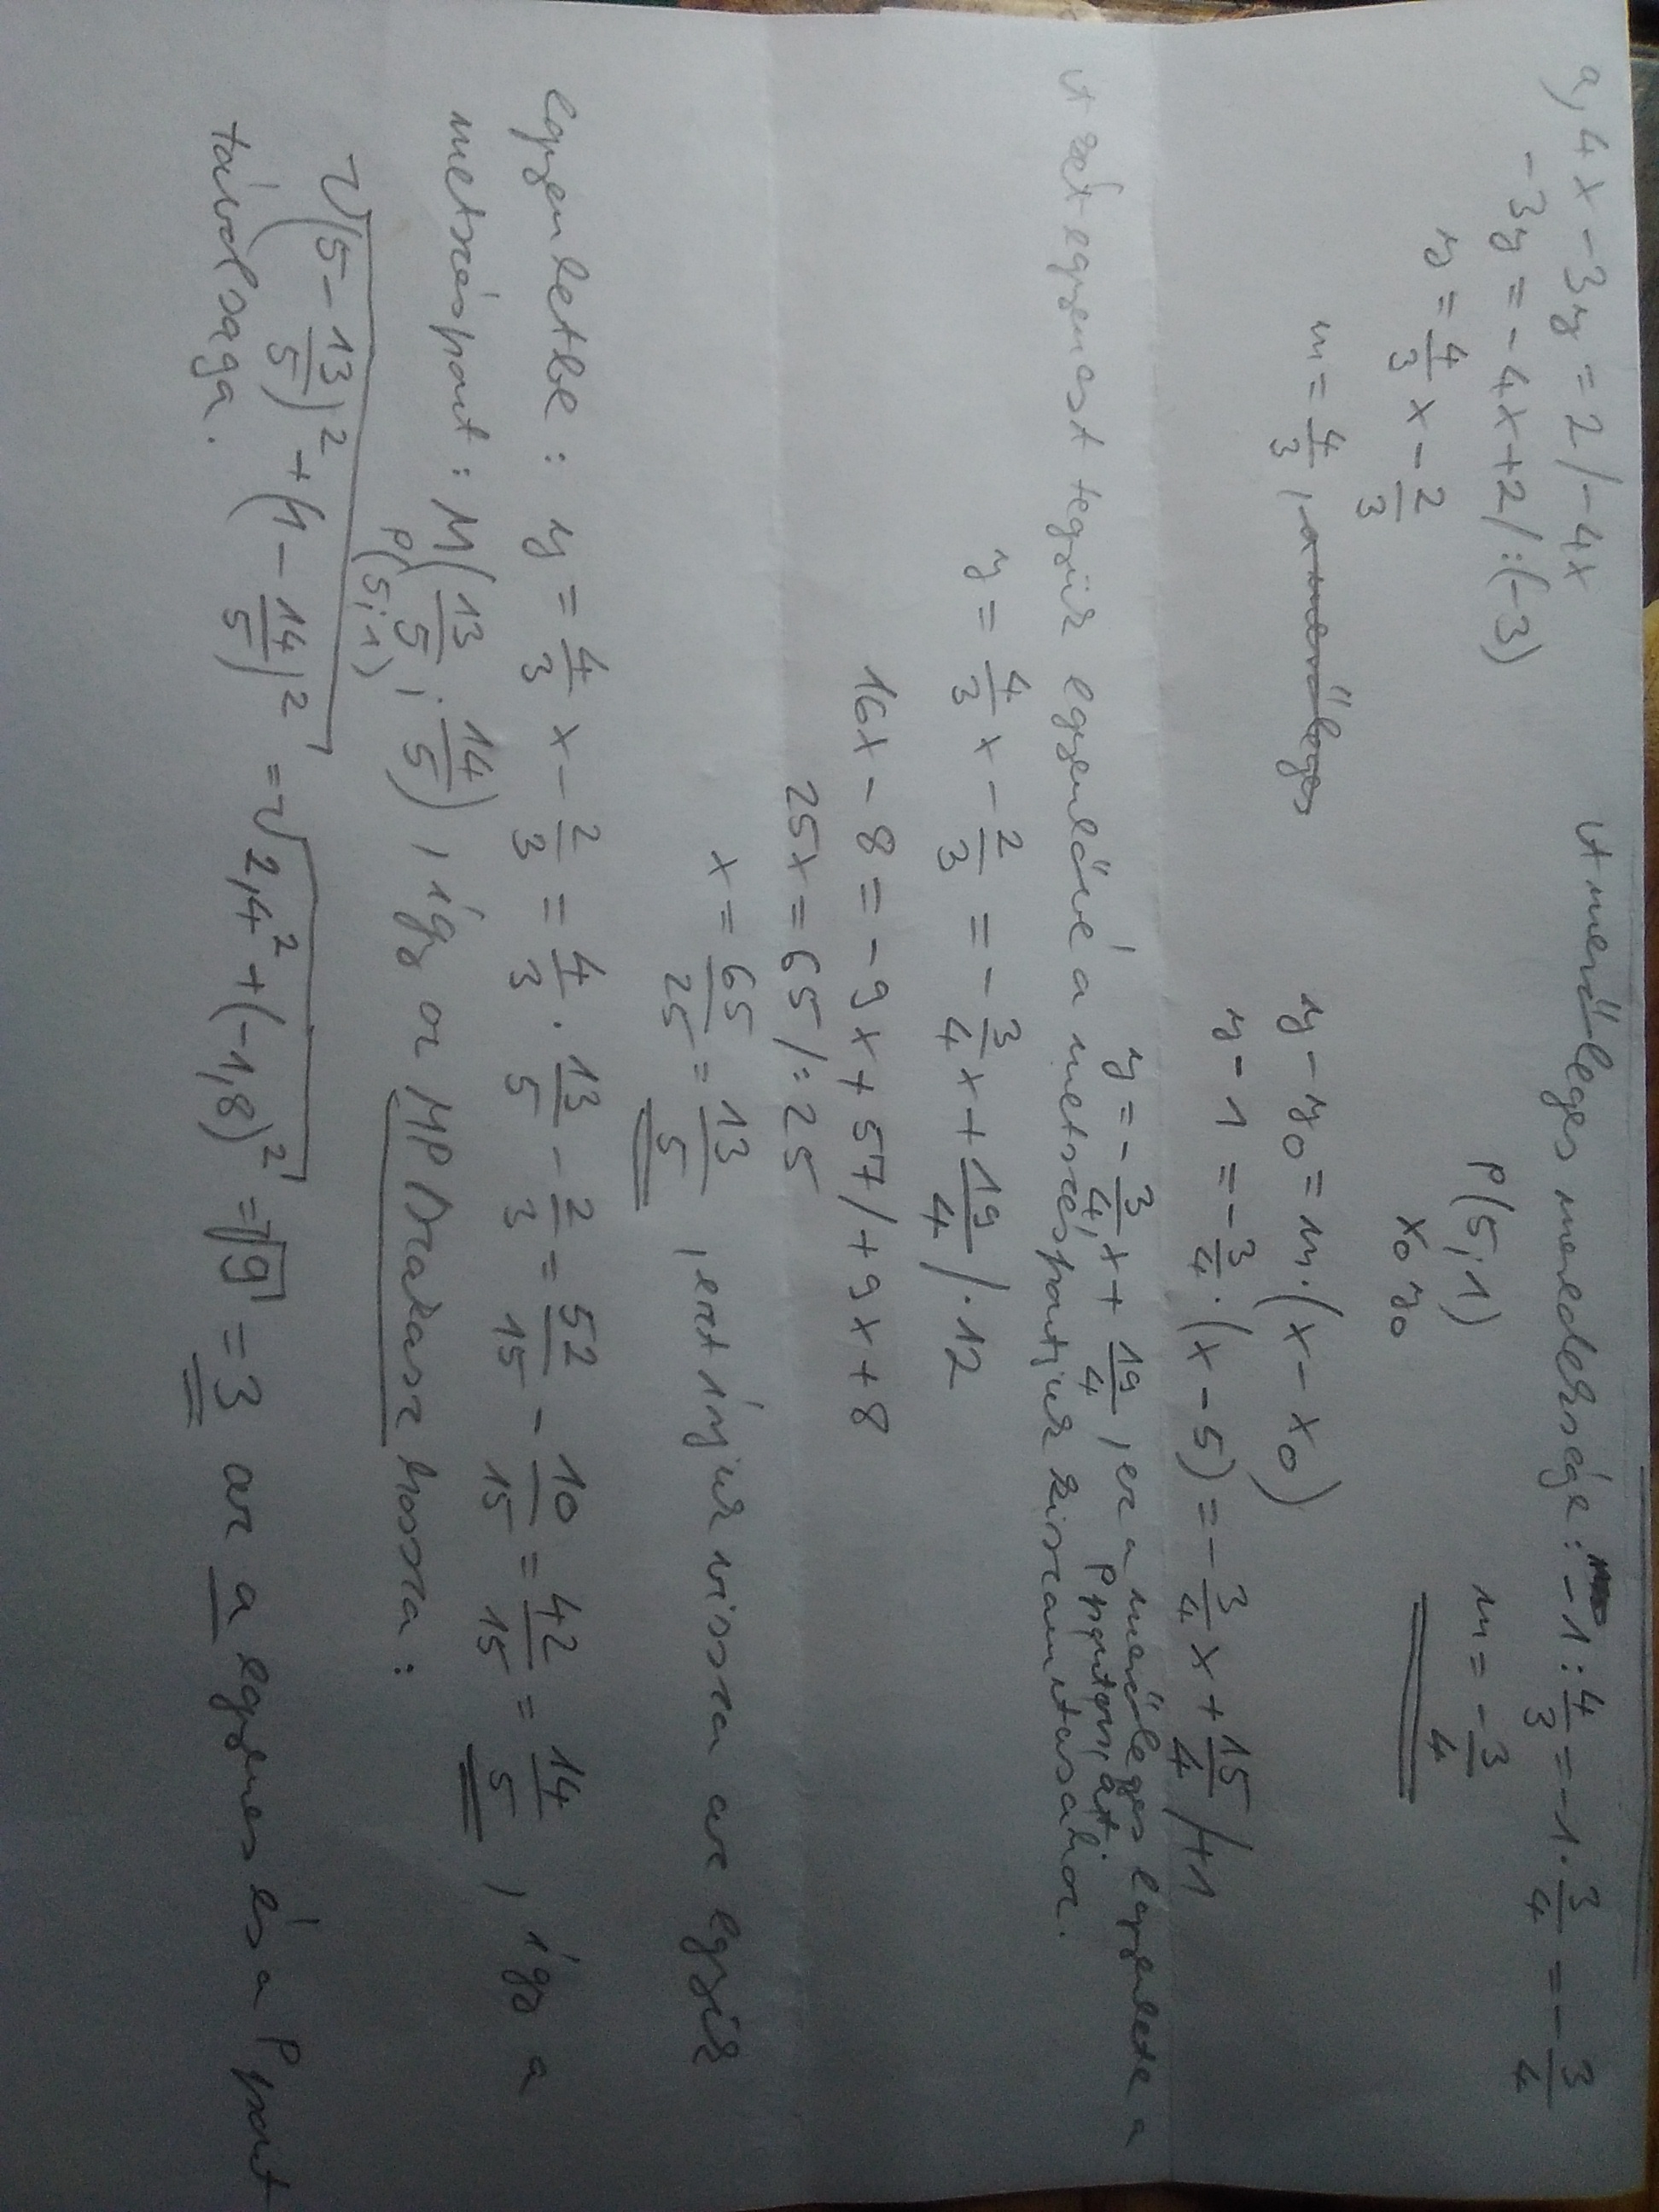 a, 4x - 3y = 2 / -4x
-3y = -4x + 2 / :(-3)
y = 4/3 x - 2/3
m = 4/3 , a merőleges
A merőleges meredeksége: -1 : 4/3 = -1 · 3/4 = -3/4
m = -3/4
P(5;1)
x₀ y₀
y - y₀ = m · (x - x₀)
y - 1 = -3/4 · (x - 5) = -3/4 x + 15/4 / +1
y = -3/4 x + 19/4 , ez a merőleges egyenlete a
P ponton át.
A két egyenest tegyük egyenlővé a metszéspontjuk kiszámításához.
y = 4/3 x - 2/3 = -3/4 x + 19/4 / ·12
16x - 8 = -9x + 57 / +9x + 8
25x = 65 / :25
x = 65/25 = 13/5 , ezt írjuk vissza az egyik
egyenletbe: y = 4/3 x - 2/3 = 4/3 · 13/5 - 2/3 = 52/15 - 10/15 = 42/15 = 14/5 , így a
metszéspont: M(13/5 ; 14/5) , így az MP szakasz hossza:
P(5;1)
√((5 - 13/5)² + (1 - 14/5)²) = √(2,4² + (-1,8)²) = √9 = 3 az a egyenes és a P pont
távolsága.